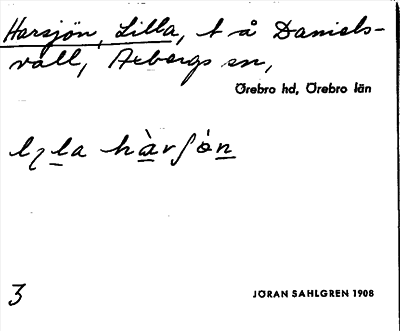 Harsjön, Lilla, t å Daniels-
vall, Axbergs sn,
Örebro hd, Örebro län
lɩla hàrʃȯn
3
JÖRAN SAHLGREN 1908